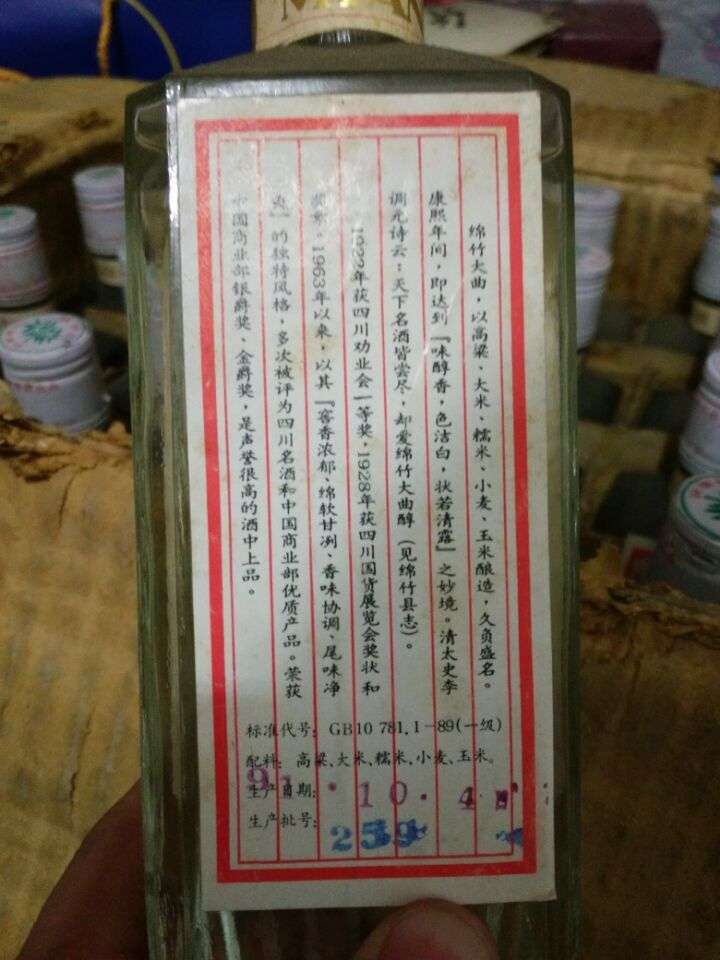 绵竹大曲，以高粱、大米、糯米、小麦、玉米酿造，久负盛名。
康熙年间，即达到『味醇香，色洁白，状若清露』之妙境。清太史李
调元诗云：天下名酒皆尝尽，却爱绵竹大曲醇（见绵竹县志）。
1922年获四川劝业会一等奖，1928年获四川国货展览会奖状和
奖章。1963年以来，以其『窖香浓郁、绵软甘冽、香味协调、尾味净
爽』的独特风格，多次被评为四川名酒和中国商业部优质产品。荣获
中国商业部银爵奖、金爵奖，是声誉很高的酒中上品。
标准代号：GB10 781.1-89(一级)
配料：高粱、大米、糯米、小麦、玉米。
生产日期：91.10.4
生产批号：259